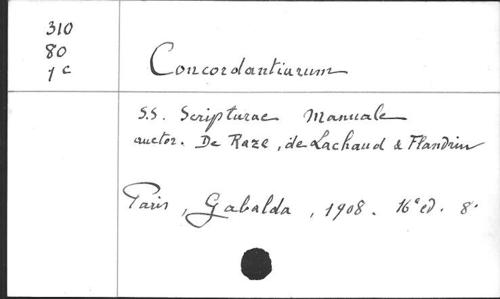 310
80
1 c
Concordantiarum
S.S. Scripturae Manuale
auctor. De Raze, de Lachaud & Flandrin
Paris, Gabalda, 1908. 16e ed. 8.